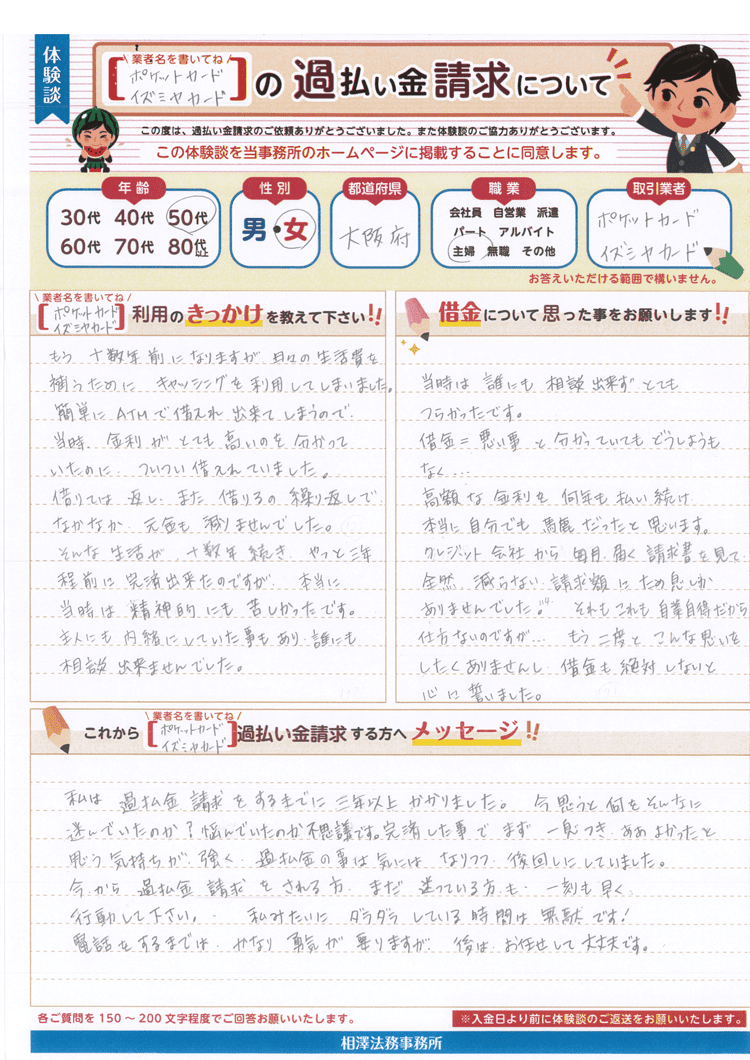 体験談
\ 業者名を書いてね /
[ポケットカード
イズミヤカード]の過払い金請求について
この度は、過払い金請求のご依頼ありがとうございました。また体験談のご協力ありがとうございます。
この体験談を当事務所のホームページに掲載することに同意します。
年齢
30代 40代 50代
60代 70代 80代以上
性別
男・女
都道府県
大阪府
職業
会社員 自営業 派遣
パート アルバイト
主婦 無職 その他
取引業者
ポケットカード
イズミヤカード
お答えいただける範囲で構いません。
\ 業者名を書いてね /
[ポケットカード
イズミヤカード]利用のきっかけを教えて下さい!!
もう 十数年前になりますが 日々の生活費を
補うために キャッシングを利用してしまいました。
簡単に ATMで借入れ出来てしまうので
当時、金利がとても高いのを分かって
いたのに、ついつい借入れていました。
借りては返し、また借りるの繰り返しで
なかなか 元金も減りませんでした。
そんな生活が、十数年続き、やっと三年
程前に完済出来たのですが、本当に
当時は精神的にも苦しかったです。
主人にも内緒にしていた事もあり、誰にも
相談出来ませんでした。
借金について思った事をお願いします!!
当時は 誰にも相談出来ず とても
つらかったです。
借金=悪い事 と分かっていてもどうしようも
なく…
高額な金利を何年も払い続け
本当に自分でも馬鹿だったと思います。
クレジット会社から毎月届く請求書を見て
全然 減らない請求額に ため息しか
ありませんでした。 それもこれも自業自得だから
仕方ないのですが… もう二度とこんな思いを
したくありませんし、借金も絶対しないと
心に誓いました。
これから
\ 業者名を書いてね /
[ポケットカード
イズミヤカード]過払い金請求する方へメッセージ!!
私は 過払金請求をするまでに三年以上かかりました。 今思うと何をそんなに
迷んでいたのか?悩んでいたのか不思議です。完済した事で まず 一息つき、ああよかったと
思う気持ちが強く、過払金の事は気にはなりつつ 後回しにしていました。
今から 過払金請求をされる方、まだ迷っている方も、一刻も早く
行動して下さい。 私みたいにダラダラしている時間は無駄です!
電話をするまでは、かなり勇気が要りますが、後は、お任せして大丈夫です。
各ご質問を150~200文字程度でご回答お願いいたします。
※入金日より前に体験談のご返送をお願いいたします。
相澤法務事務所